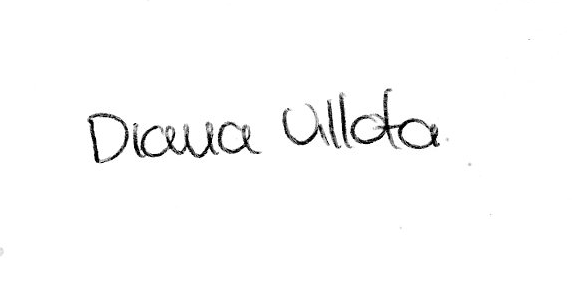 Diana Ullota